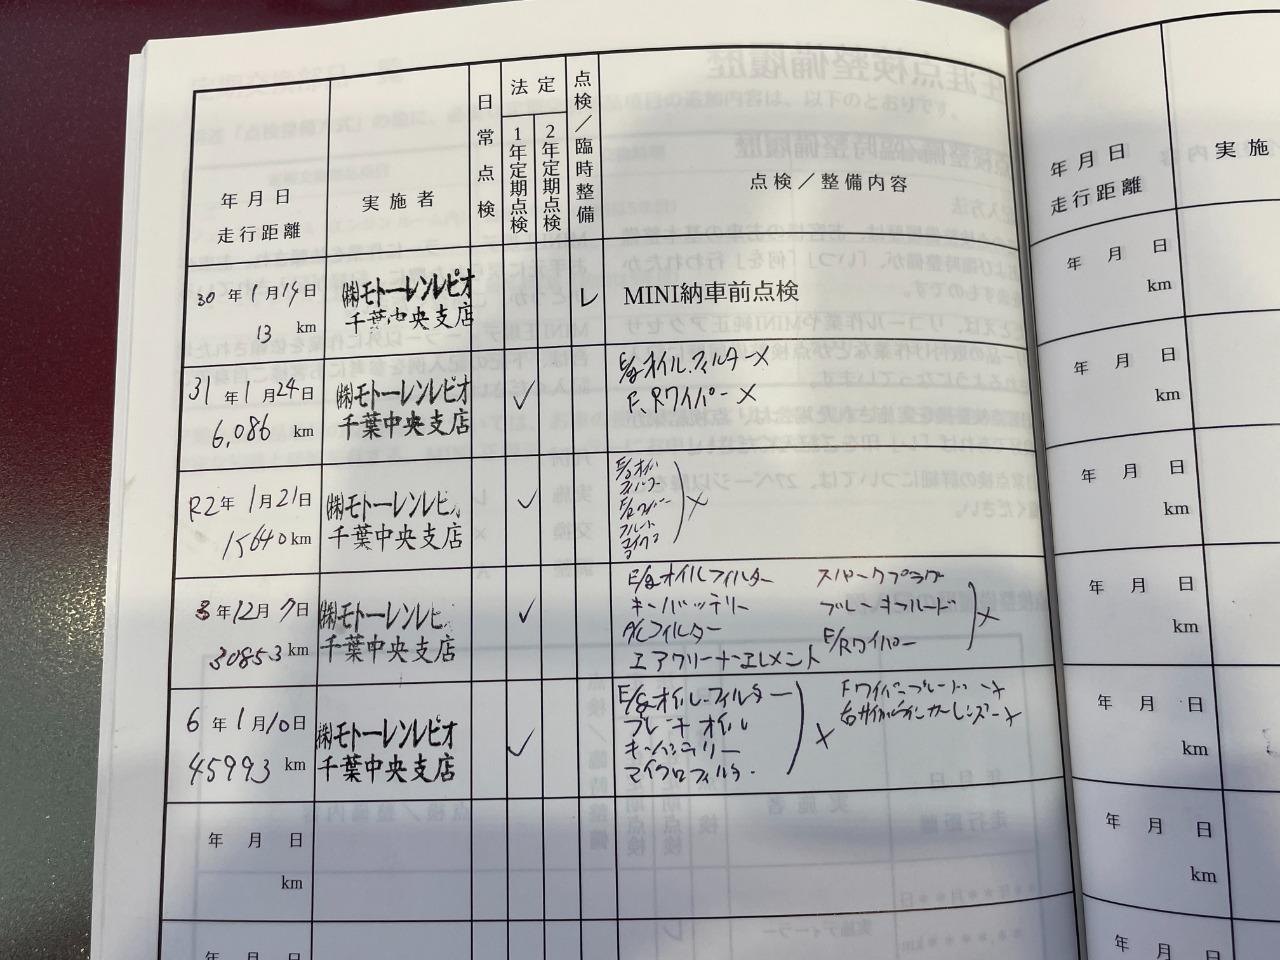 年月日
走行距離
実施者
日常点検
法定
1年定期点検
2年定期点検
点検／臨時整備
点検／整備内容
30年1月19日
13 km
㈱モトーレンレピオ
千葉中央支店
レ
MINI納車前点検
31年1月24日
6,086 km
㈱モトーレンレピオ
千葉中央支店
✓
E/gオイル.フィルター×
F、Rワイパー×
R2年1月21日
15640km
㈱モトーレンレピ
千葉中央支店
✓
×
3年12月7日
30853km
㈱モトーレンレピ
千葉中央支店
✓
E/gオイルフィルター スパークプラグ
キーバッテリー ブレーキフルード
A/Cフィルター F/Rワイパー
エアクリーナーエレメント
×
6年1月10日
45993 km
㈱モトーレンレピオ
千葉中央支店
✓
E/gオイル.フィルター Fワイパーブレード ×
ブレーキオイル
キーバッテリー
マイクロフィルター
×
年月日
km
年月日
年月日
走行距離
実施
年月日
km
年月日
km
年月日
km
年月日
km
年月日
km
年月日
km
年月日